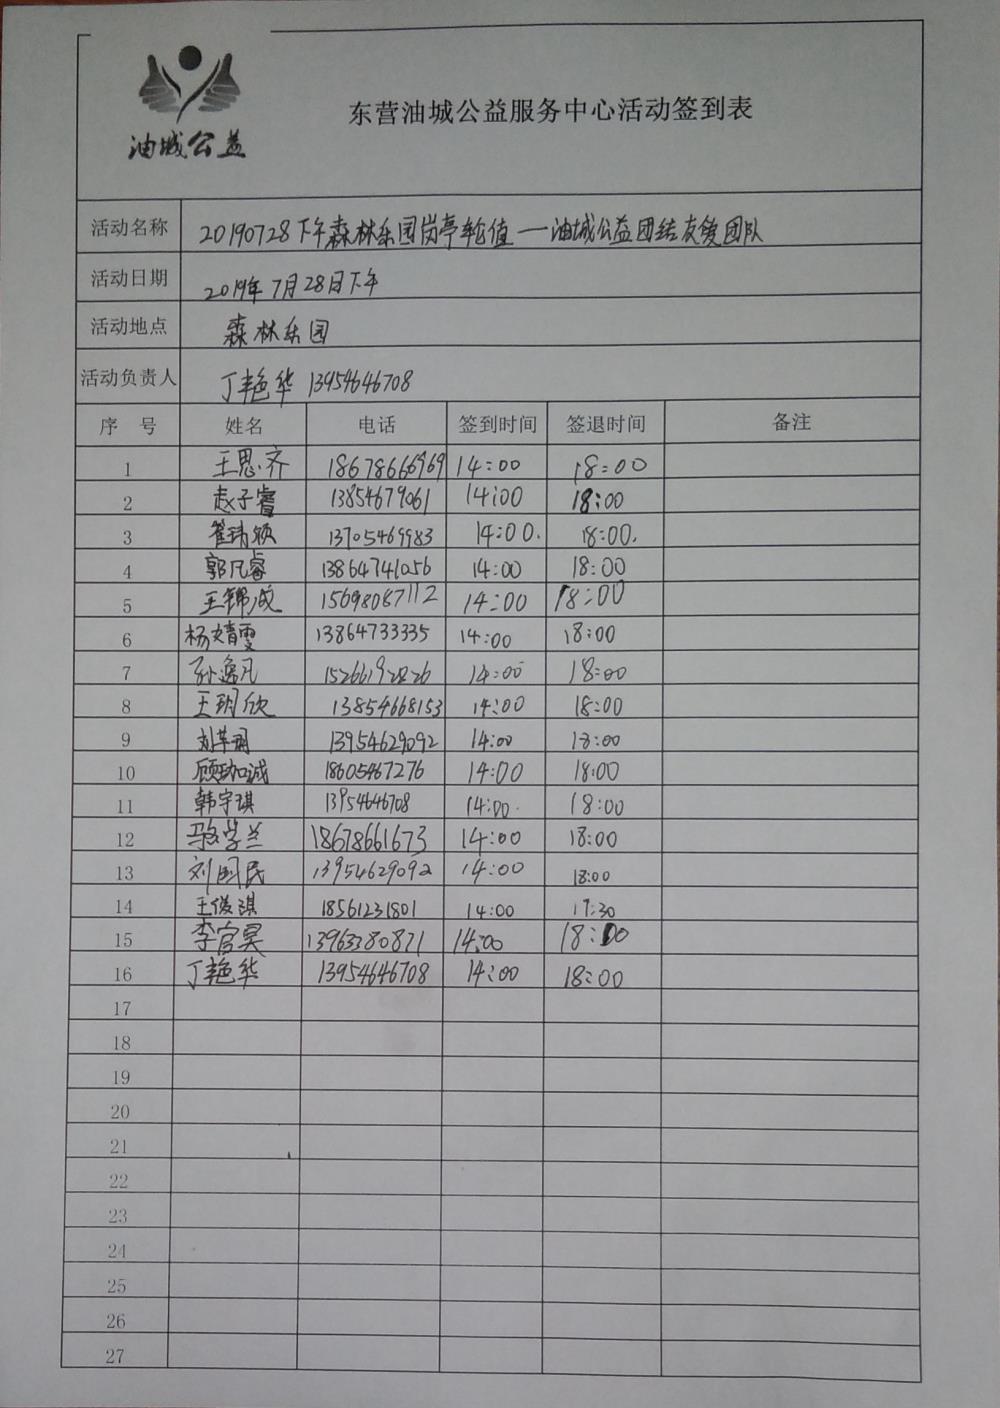 油城公益
东营油城公益服务中心活动签到表
活动名称 20190728下午森林乐园岗亭轮值一油城公益团结友爱团队
活动日期 2019年7月28日下午
活动地点 森林乐园
活动负责人 丁艳华 13954646708
序 号 姓名 电话 签到时间 签退时间 备注
1 王思齐 18678666969 14:00 18:00
2 赵子睿 13854679061 14:00 18:00
3 崔靖颖 13705469983 14:00. 18:00.
4 郭凡睿 13864741056 14:00 18:00
5 王锦成 15698087112 14:00 18:00
6 杨婧雯 13864733335 14:00 18:00
7 孙逸凡 15266192826 14:00 18:00
8 王玥欣 13854668153 14:00 18:00
9 13954629092 14:00 18:00
10 顾珈诚 18605467276 14:00 18:00
11 韩宇琪 13954646708 14:00 18:00
12 18678661673 14:00 18:00
13 刘国民 13954629092 14:00 18:00
14 王俊淇 18561231801 14:00 17:30
15 李官昊 13963380871 14:00 18:00
16 丁艳华 13954646708 14:00 18:00
17
18
19
20
21
22
23
24
25
26
27